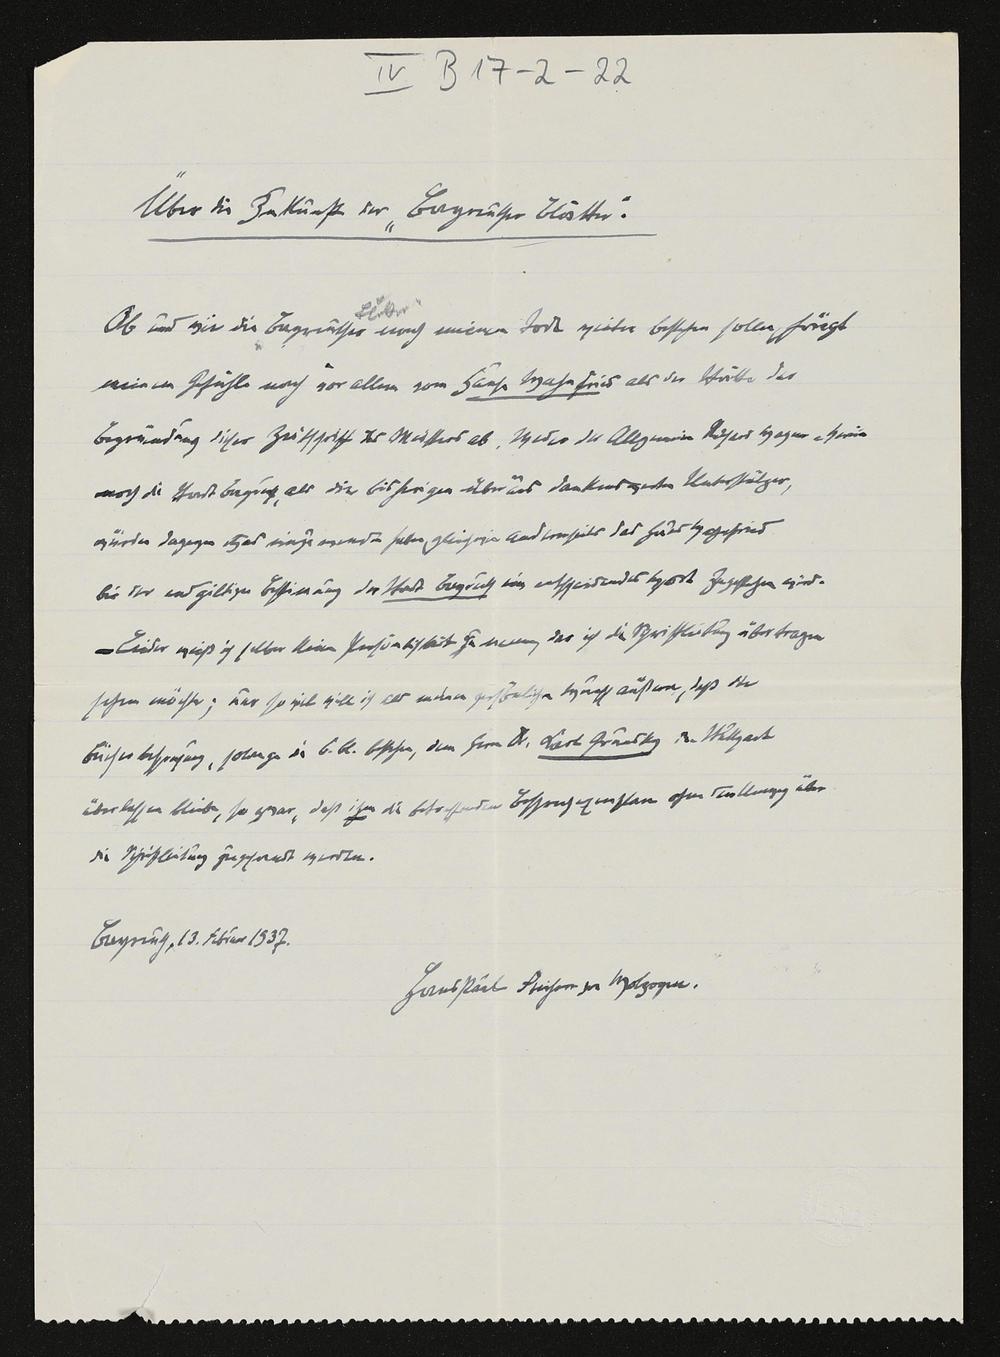 IV B 17-2-22
Über die Zukunft der „Bayreuther Blätter".
Blätter"
Ob und wie die „Bayreuther nach meinem Tode weiter bestehen sollen, hängt
meinem Gefühle nach vor allem vom Hause Wahnfried als der Stätte der
Begründung dieser Zeitschrift des Meisters ab. Weder der Allgemeine Richard Wagner-Verein
noch die Stadt Bayreuth, als die bisherigen überaus dankenswerten Unterstützer,
würden dagegen etwas einzuwenden haben, andrerseits das Haus Wahnfried
bei der endgiltigen Bestimmung der Stadt Bayreuth ein entscheidendes Wort zugestehen wird.
– Leider weiß ich selber keine Persönlichkeit zu nennen, der ich die Schriftleitung übertragen
sehen möchte; nur so viel will ich als meinen persönlichen Wunsch äußern, daß die
Bücherbesprechung, solange die B. Bl. bestehen, dem Herrn Dr. Karl Grunsky in Stuttgart
überlassen bleibe, so zwar, daß ihm die betreffenden ohne über
die Schriftleitung zugesandt werden.
Bayreuth, 13. Februar 1937.
Hans Paul Freiherr von Wolzogen.